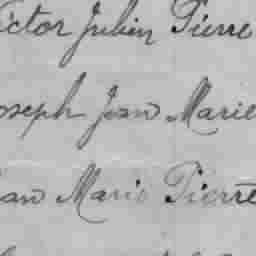 ictor Julien Pierre
oseph Jean Marie
ean Marie Pierre